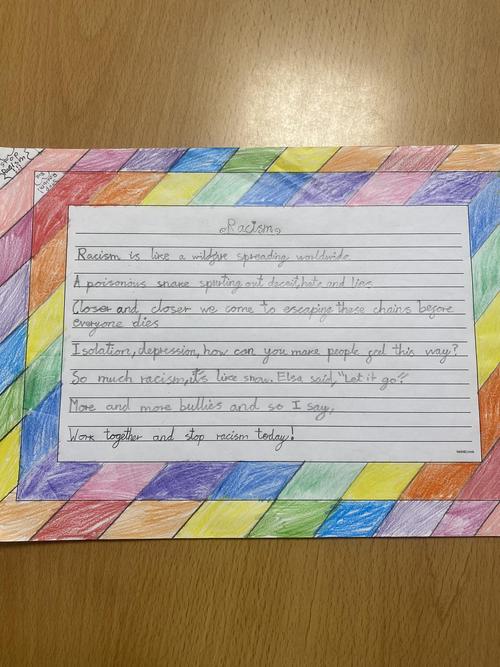 Stop
Racism
Racism
Racism is like a wildfire spreading worldwide
A poisonous snake spurting out deceit, hate and lies
Closer and closer we come to escaping these chains before
everyone dies
Isolation, depression, how can you make people feel this way?
So much racism, it's like snow. Elsa said, "Let it go".
More and more bullies and so I say,
Work together and stop racism today!